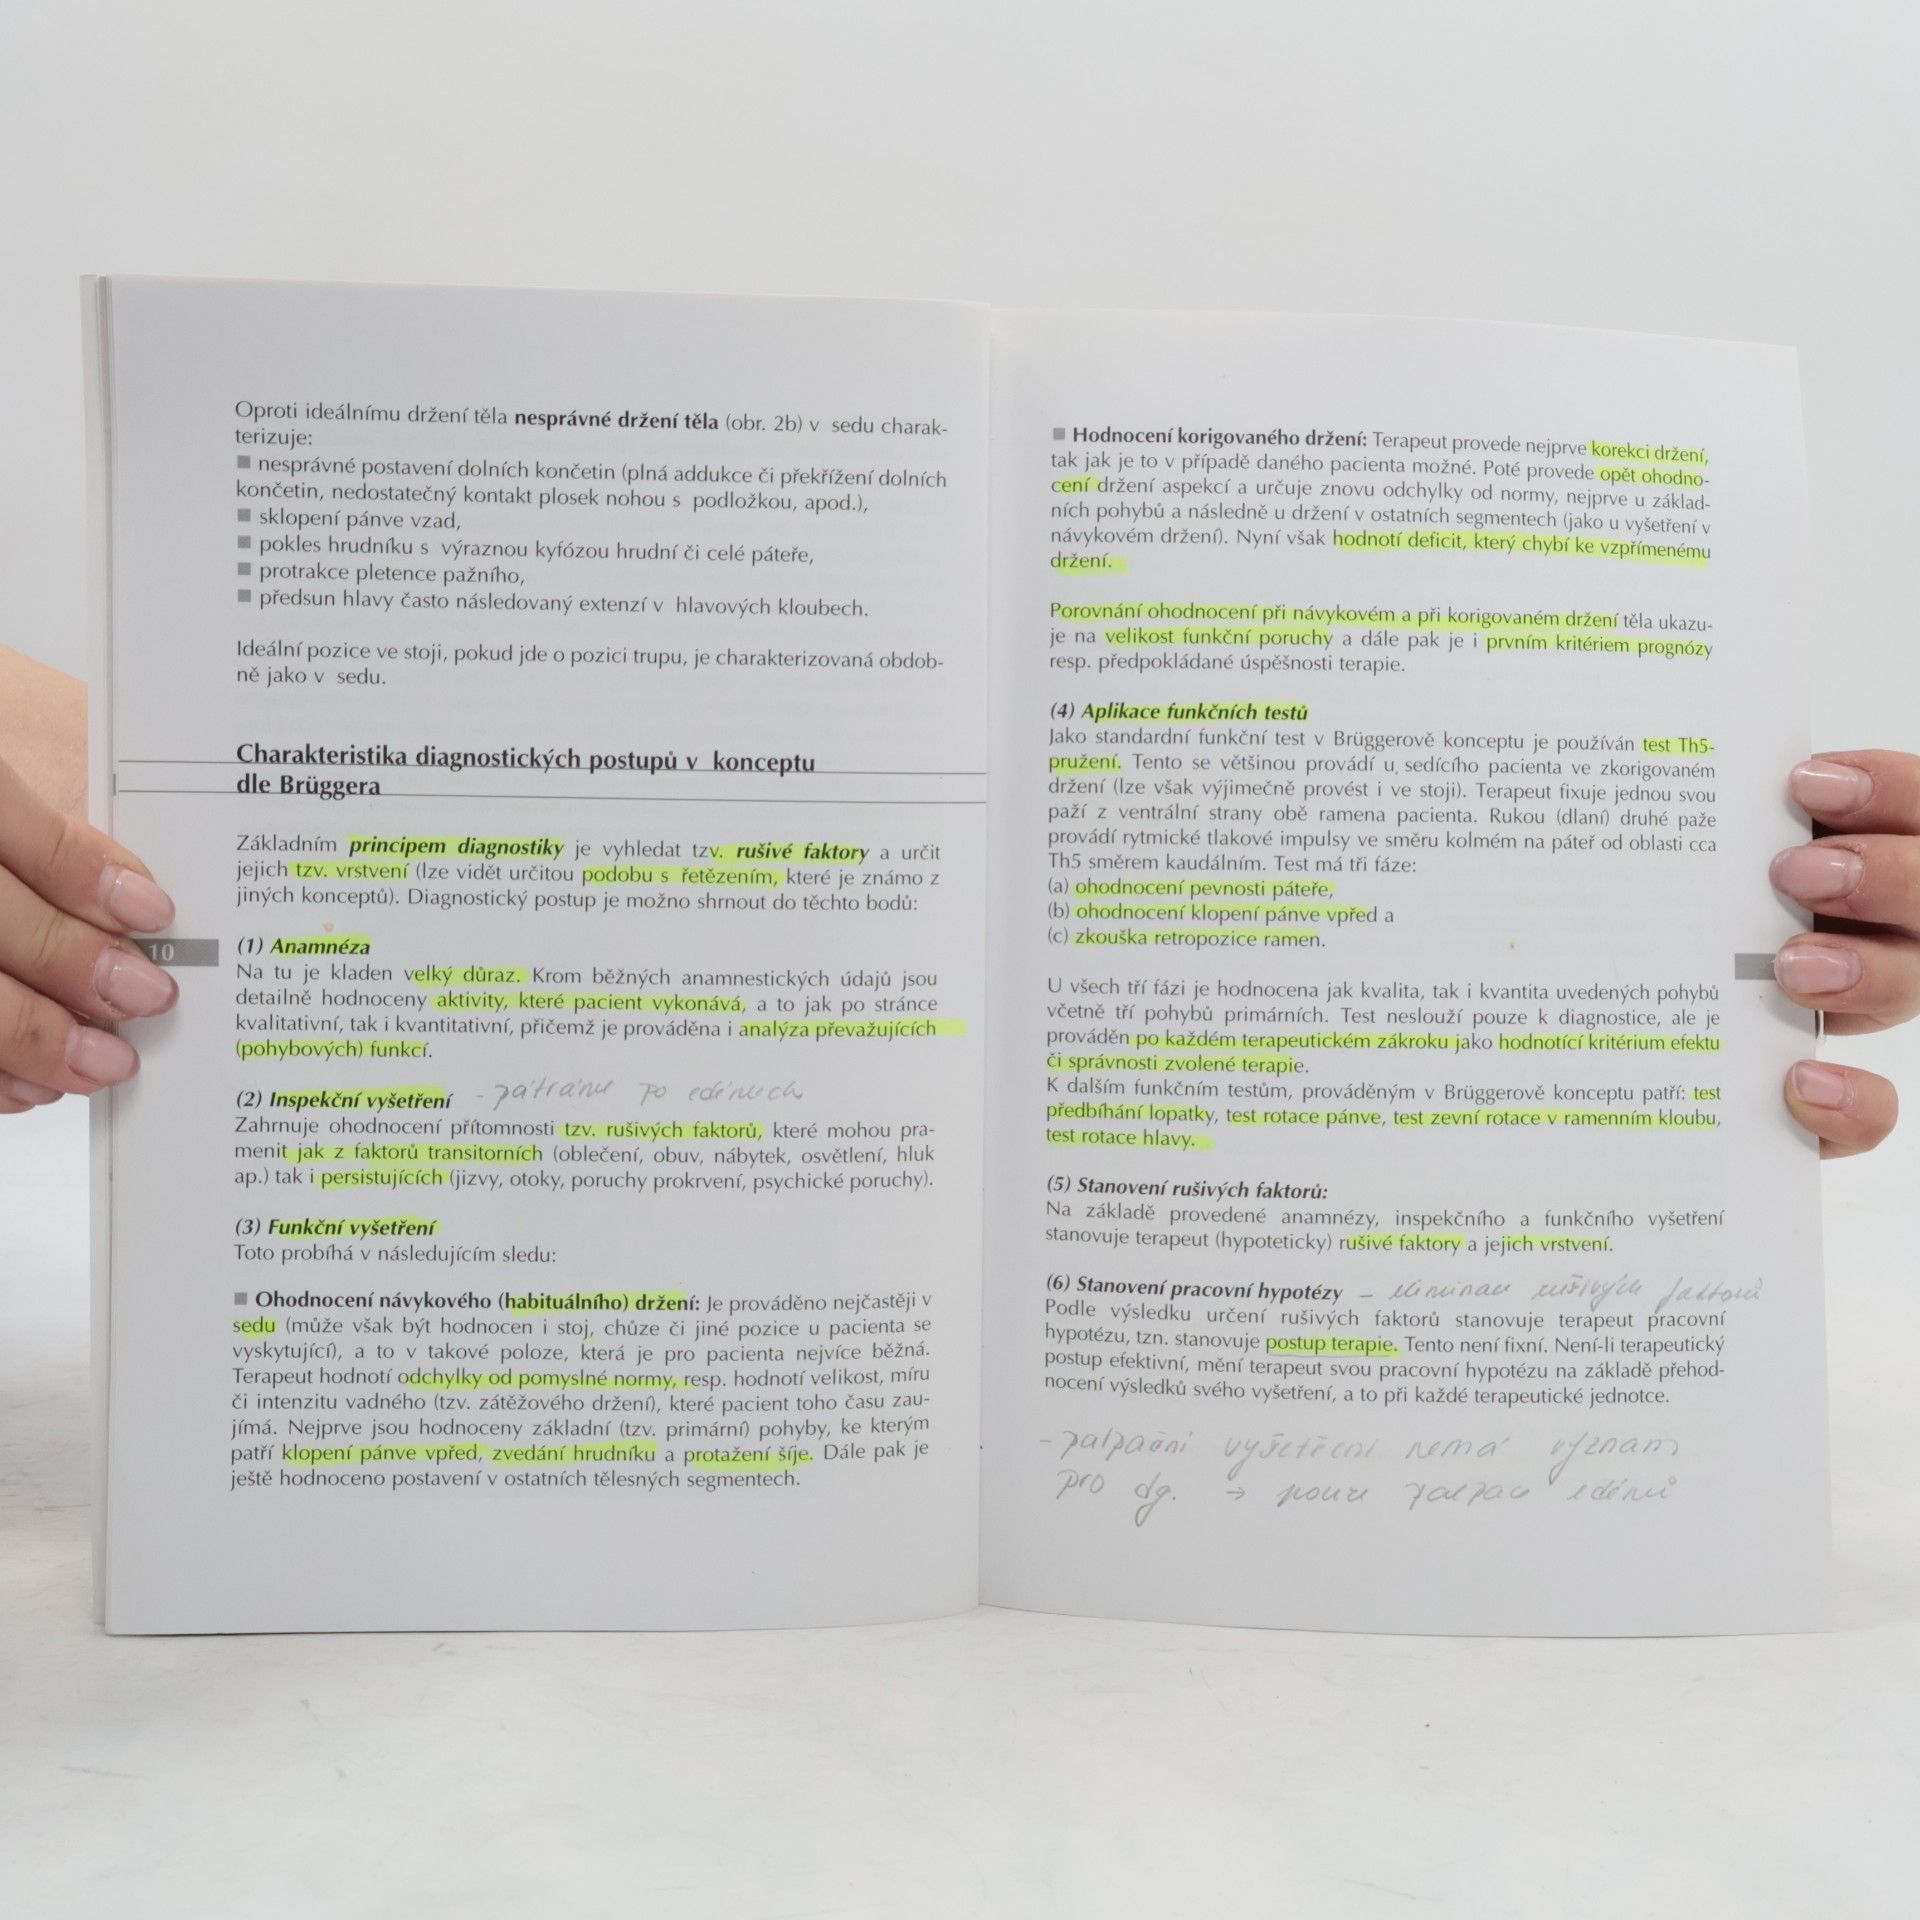 Oproti ideálnímu držení těla nesprávné držení těla (obr. 2b) v sedu charak-
terizuje:
■ nesprávné postavení dolních končetin (plná addukce či překřížení dolních
končetin, nedostatečný kontakt plosek nohou s podložkou, apod.),
■ sklopení pánve vzad,
■ pokles hrudníku s výraznou kyfózou hrudní či celé páteře,
■ protrakce pletence pažního,
■ předsun hlavy často následovaný extenzí v hlavových kloubech.
Ideální pozice ve stoji, pokud jde o pozici trupu, je charakterizovaná obdob-
ně jako v sedu.
Charakteristika diagnostických postupů v konceptu
dle Brüggera
Základním principem diagnostiky je vyhledat tzv. rušivé faktory a určit
jejich tzv. vrstvení (lze vidět určitou podobu s řetězením, které je známo z
jiných konceptů). Diagnostický postup je možno shrnout do těchto bodů:
(1) Anamnéza
Na tu je kladen velký důraz. Krom běžných anamnestických údajů jsou
detailně hodnoceny aktivity, které pacient vykonává, a to jak po stránce
kvalitativní, tak i kvantitativní, přičemž je prováděna i analýza převažujících
(pohybových) funkcí.
10
(2) Inspekční vyšetření - pátráme po edémech
Zahrnuje ohodnocení přítomnosti tzv. rušivých faktorů, které mohou pra-
menit jak z faktorů transitorních (oblečení, obuv, nábytek, osvětlení, hluk
ap.) tak i persistujících (jizvy, otoky, poruchy prokrvení, psychické poruchy).
(3) Funkční vyšetření
Toto probíhá v následujícím sledu:
■ Ohodnocení návykového (habituálního) držení: Je prováděno nejčastěji v
sedu (může však být hodnocen i stoj, chůze či jiné pozice u pacienta se
vyskytující), a to v takové poloze, která je pro pacienta nejvíce běžná.
Terapeut hodnotí odchylky od pomyslné normy, resp. hodnotí velikost, míru
či intenzitu vadného (tzv. zátěžového držení), které pacient toho času zau-
jímá. Nejprve jsou hodnoceny základní (tzv. primární) pohyby, ke kterým
patří klopení pánve vpřed, zvedání hrudníku a protažení šíje. Dále pak je
ještě hodnoceno postavení v ostatních tělesných segmentech.
■ Hodnocení korigovaného držení: Terapeut provede nejprve korekci držení,
tak jak je to v případě daného pacienta možné. Poté provede opět ohodno-
cení držení aspekcí a určuje znovu odchylky od normy, nejprve u základ-
ních pohybů a následně u držení v ostatních segmentech (jako u vyšetření v
návykovém držení). Nyní však hodnotí deficit, který chybí ke vzpřímenému
držení.
Porovnání ohodnocení při návykovém a při korigovaném držení těla ukazu-
je na velikost funkční poruchy a dále pak je i prvním kritériem prognózy
resp. předpokládané úspěšnosti terapie.
(4) Aplikace funkčních testů
Jako standardní funkční test v Brüggerově konceptu je používán test Th5-
pružení. Tento se většinou provádí u sedícího pacienta ve zkorigovaném
držení (lze však výjimečně provést i ve stoji). Terapeut fixuje jednou svou
paží z ventrální strany obě ramena pacienta. Rukou (dlaní) druhé paže
provádí rytmické tlakové impulsy ve směru kolmém na páteř od oblasti cca
Th5 směrem kaudálním. Test má tři fáze:
(a) ohodnocení pevnosti páteře,
(b) ohodnocení klopení pánve vpřed a
(c) zkouška retropozice ramen.
U všech tří fázi je hodnocena jak kvalita, tak i kvantita uvedených pohybů
včetně tří pohybů primárních. Test neslouží pouze k diagnostice, ale je
prováděn po každém terapeutickém zákroku jako hodnotící kritérium efektu
či správnosti zvolené terapie.
K dalším funkčním testům, prováděným v Brüggerově konceptu patří: test
předbíhání lopatky, test rotace pánve, test zevní rotace v ramenním kloubu,
test rotace hlavy.
(5) Stanovení rušivých faktorů:
Na základě provedené anamnézy, inspekčního a funkčního vyšetření
stanovuje terapeut (hypoteticky) rušivé faktory a jejich vrstvení.
(6) Stanovení pracovní hypotézy – eliminace rušivých faktorů
Podle výsledku určení rušivých faktorů stanovuje terapeut pracovní
hypotézu, tzn. stanovuje postup terapie. Tento není fixní. Není-li terapeutický
postup efektivní, mění terapeut svou pracovní hypotézu na základě přehod-
nocení výsledků svého vyšetření, a to při každé terapeutické jednotce.
- palpační vyšetření nemá význam
pro dg. → pouze palpace edémů